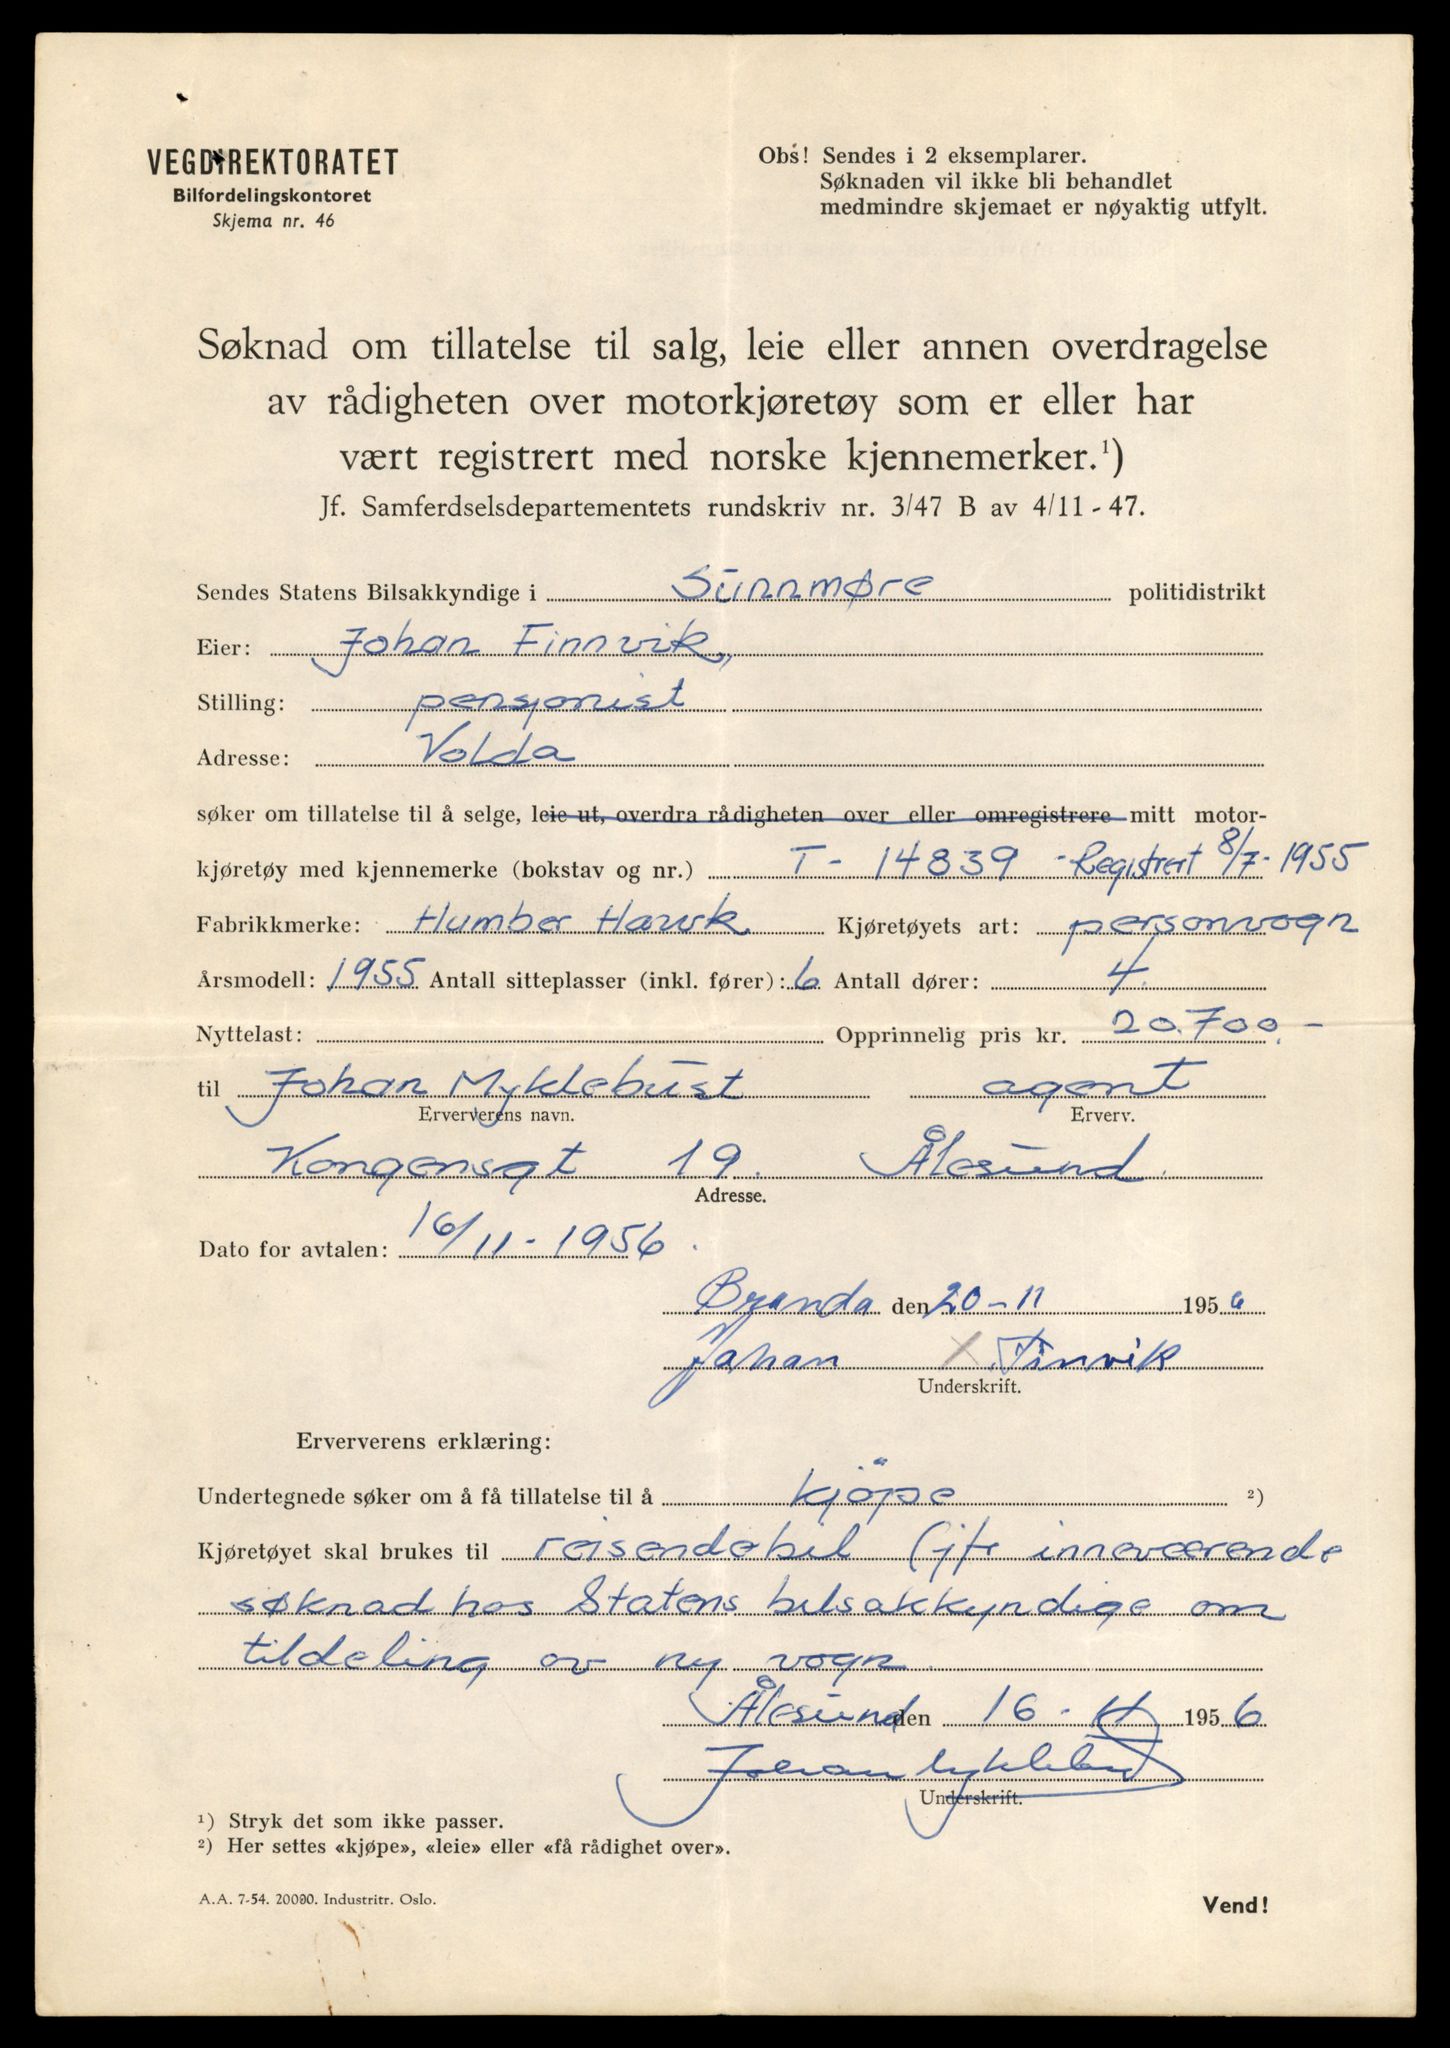 VEGDIREKTORATET
Bilfordelingskontoret
Skjema nr. 46
Obs! Sendes i 2 eksemplarer.
Søknaden vil ikke bli behandlet
medmindre skjemaet er nøyaktig utfylt.
Søknad om tillatelse til salg, leie eller annen overdragelse
av rådigheten over motorkjøretøy som er eller har
vært registrert med norske kjennemerker.¹)
Jf. Samferdselsdepartementets rundskriv nr. 3/47 B av 4/11 - 47.
Sendes Statens Bilsakkyndige i Sunnmøre politidistrikt
Eier: Johan Finnvik,
Stilling: pensjonist
Adresse: Volda
søker om tillatelse til å selge, leie ut, overdra rådigheten over eller omregistrere mitt motor-
kjøretøy med kjennemerke (bokstav og nr.) T - 14839 - Registrert 8/7 - 1955
Fabrikkmerke: Humber Hawk Kjøretøyets art: personvogn
Årsmodell: 1955 Antall sitteplasser (inkl. fører): 6 Antall dører: 4.
Nyttelast: Opprinnelig pris kr. 20.700.-
til Johan Myklebust agent
Erververens navn. Erverv.
Kongensgt 19. Ålesund.
Adresse.
Dato for avtalen: 16/11 - 1956.
den 20-11 1956
Johan X Finvik
Underskrift.
Erververens erklæring:
Undertegnede søker om å få tillatelse til å kjöpe ²)
Kjøretøyet skal brukes til reisendebil (jfr inneværende
søknad hos Statens bilsakkyndige om
tildeling av ny vogn.
Ålesund den 16 - 11 1956
Johan Myklebust
Underskrift.
¹) Stryk det som ikke passer.
²) Her settes «kjøpe», «leie» eller «få rådighet over».
A.A. 7-54. 20000. Industritr. Oslo.
Vend!